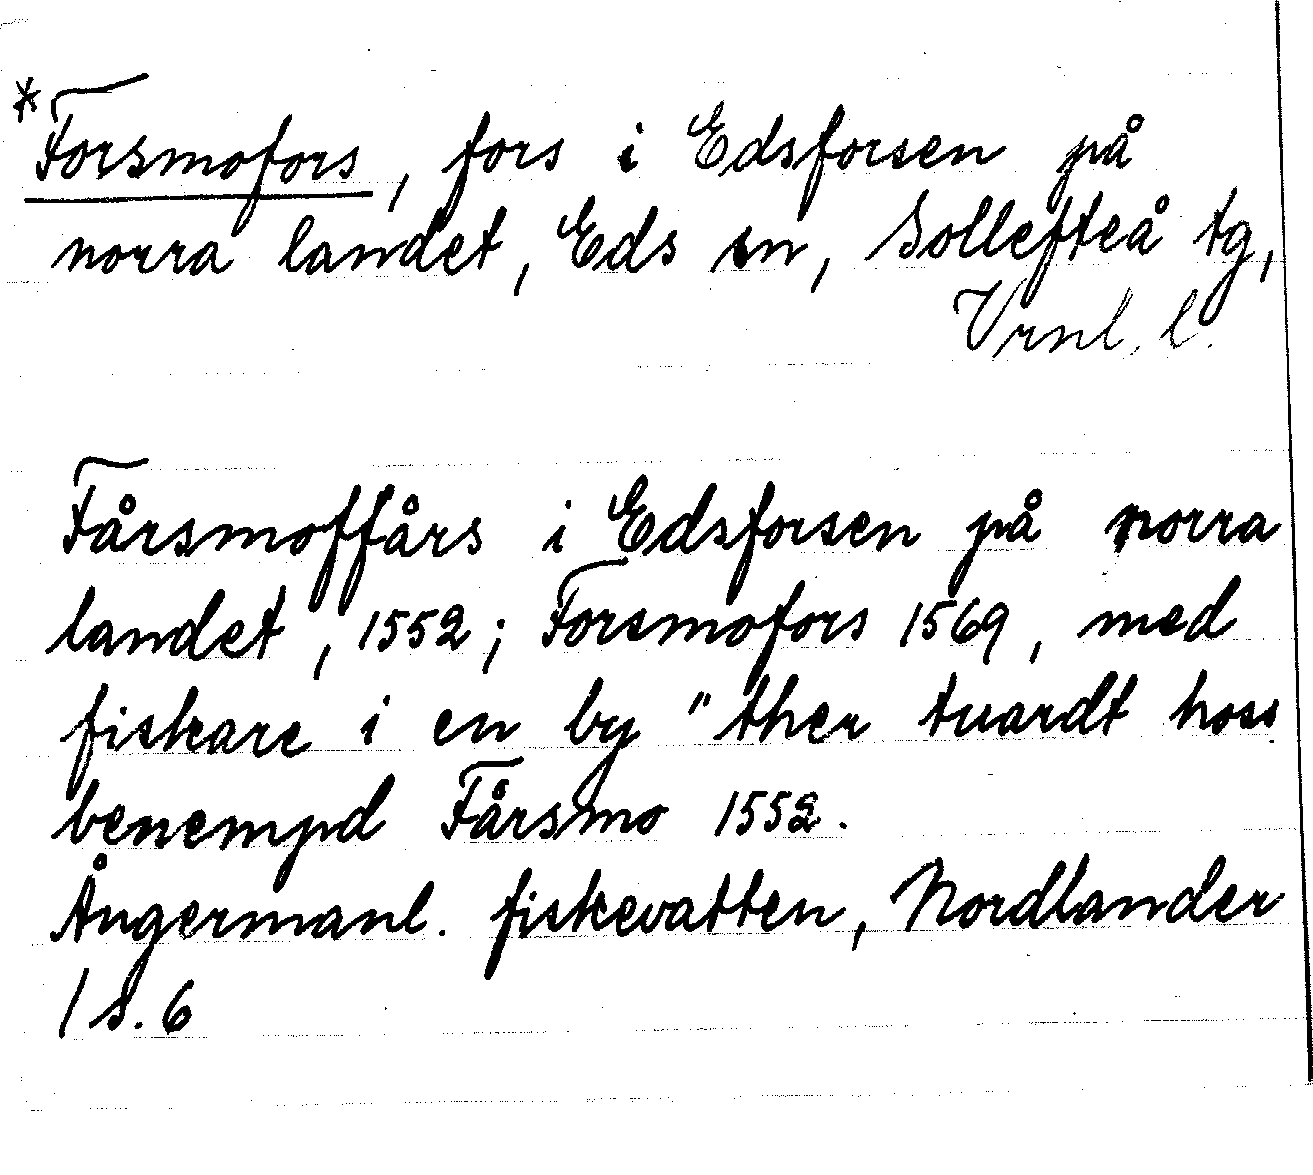 *Forsmofors, fors i Edsforsen på
norra landet, Eds sn, Sollefteå tg,
Vrnl. l.
Fårsmoffårs i Edsforsen på norra
landet, 1552; Forsmofors 1569, med
fiskare i en by "ther tvardt hoss
benempd Fårsmo 1552.
Ångermanl. fiskevatten, Nordlander
1 s. 6